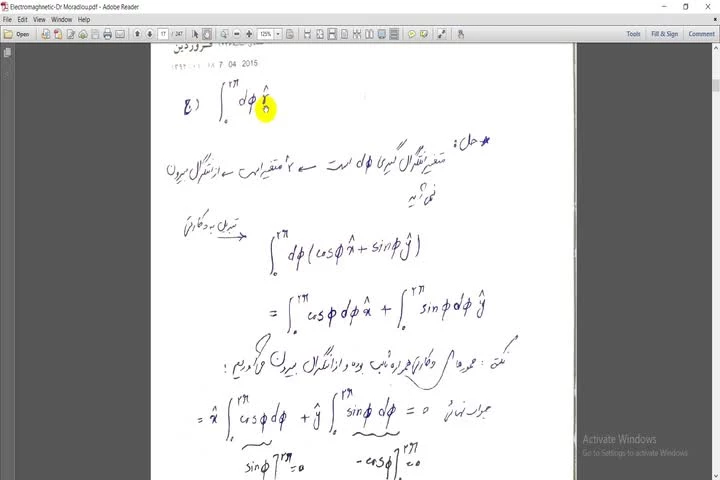 Electromaghnetic-Dr Moradlou.pdf - Adobe Reader
File Edit View Window Help
Open 17 / 247 125% Tools Fill & Sign Comment
فروردین
7 04 2015
ج) ∫₀^۲π dφ r̂
*حل:
متغیر انتگرال گیری dφ است ← r̂ متغیر است ← از انتگرال بیرون
نمی آید
تبدیل به دکارتی →
∫₀^۲π dφ (cosφ x̂ + sinφ ŷ)
= ∫₀^۲π cosφ dφ x̂ + ∫₀^۲π sinφ dφ ŷ
نکته: محورها دکارتی همواره ثابت بوده و از انتگرال بیرون می آوریم:
= x̂ ∫₀^۲π cosφ dφ + ŷ ∫₀^۲π sinφ dφ = ۰ جواب نهائی
sinφ ]₀^۲π = ۰ -cosφ ]₀^۲π = ۰
Activate Windows
Go to Settings to activate Windows.